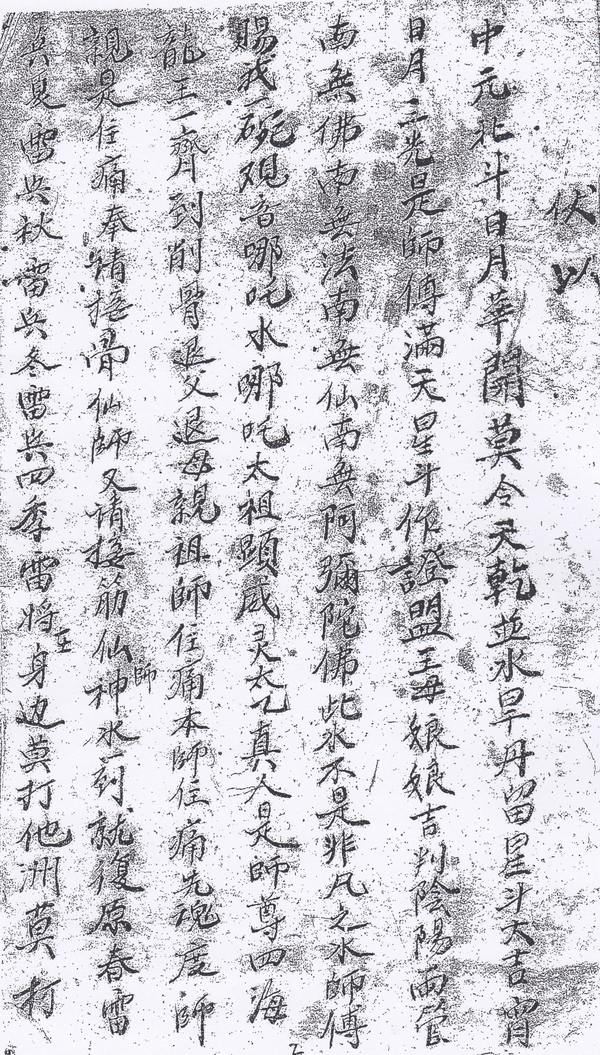 伏以
中元北斗日月華開莫令天乾並水旱丹留星斗大吉宵
日月三光是師傅滿天星斗作證盟王母娘娘吉判陰陽兩管
南無佛南無法南無仙南無阿彌陀佛此水不是非凡之水師傅
賜我一碗观音哪吒水哪吒太祖顕威灵太乙真人是師尊四海
龍王一齊到削骨退父退母親祖師住痛本師住痛先魂度師
親是住痛奉請接骨仙師又請接筋仙師神水一到就復原春雷
兵夏雷兵秋雷兵冬雷兵四季雷将在身边莫打他洲莫打
2